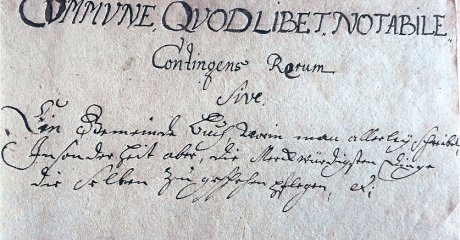 COMMVNE. QVODLIBET. NOTABILE.
Contingens Rerum
Sive.
Ein Gemeinde Buch worin man allerley schreibet,
Insonderheit aber, die Merckwürdigsten Dinge
die selben zu geschehen pflegen, &c;